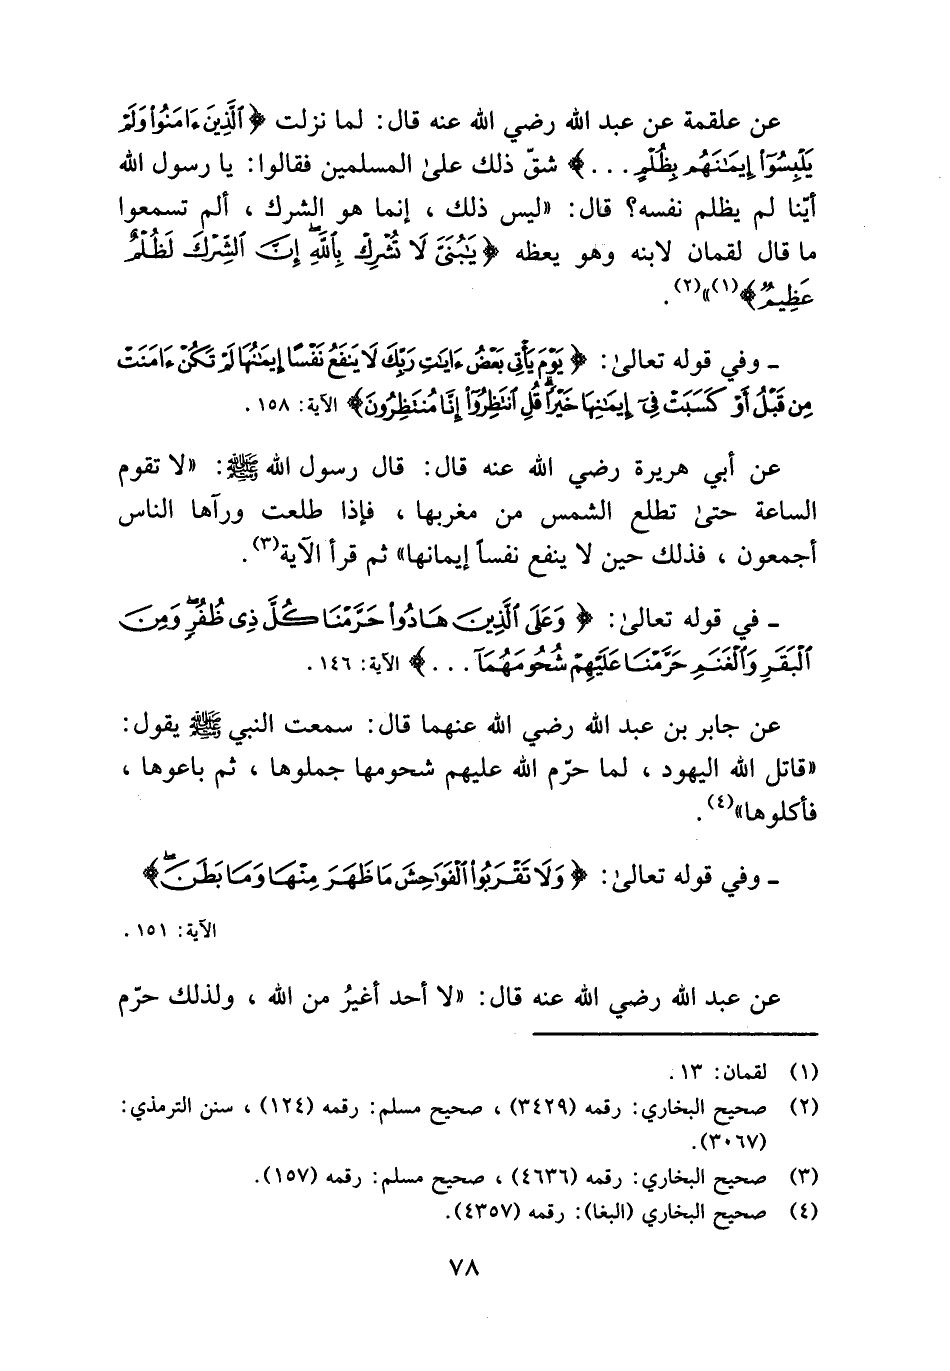 عن علقمة عن عبد الله رضي الله عنه قال: لما نزلت ﴿ٱلَّذِينَ ءَامَنُوا۟ وَلَمْ
يَلْبِسُوٓا۟ إِيمَٰنَهُم بِظُلْمٍ . . .﴾ شقّ ذلك علىٰ المسلمين فقالوا: يا رسول الله
أيّنا لم يظلم نفسه؟ قال: «ليس ذلك ، إنما هو الشرك ، ألم تسمعوا
ما قال لقمان لابنه وهو يعظه ﴿يَٰبُنَىَّ لَا تُشْرِكْ بِٱللَّهِ ۖ إِنَّ ٱلشِّرْكَ لَظُلْمٌ
عَظِيمٌ﴾(١)»(٢).
ـ وفي قوله تعالىٰ: ﴿يَوْمَ يَأْتِى بَعْضُ ءَايَٰتِ رَبِّكَ لَا يَنفَعُ نَفْسًا إِيمَٰنُهَا لَمْ تَكُنْ ءَامَنَتْ
مِن قَبْلُ أَوْ كَسَبَتْ فِىٓ إِيمَٰنِهَا خَيْرًا ۗ قُلِ ٱنتَظِرُوٓا۟ إِنَّا مُنتَظِرُونَ﴾ الآية: ١٥٨ .
عن أبي هريرة رضي الله عنه قال: قال رسول الله ﷺ: «لا تقوم
الساعة حتىٰ تطلع الشمس من مغربها ، فإذا طلعت ورآها الناس
أجمعون ، فذلك حين لا ينفع نفساً إيمانها» ثم قرأ الآية(٣).
ـ في قوله تعالىٰ: ﴿وَعَلَى ٱلَّذِينَ هَادُوا۟ حَرَّمْنَا كُلَّ ذِى ظُفُرٍ ۖ وَمِنَ
ٱلْبَقَرِ وَٱلْغَنَمِ حَرَّمْنَا عَلَيْهِمْ شُحُومَهُمَآ . . .﴾ الآية: ١٤٦ .
عن جابر بن عبد الله رضي الله عنهما قال: سمعت النبي ﷺ يقول:
«قاتل الله اليهود ، لما حرّم الله عليهم شحومها جملوها ، ثم باعوها ،
فأكلوها»(٤).
ـ وفي قوله تعالىٰ: ﴿وَلَا تَقْرَبُوا۟ ٱلْفَوَٰحِشَ مَا ظَهَرَ مِنْهَا وَمَا بَطَنَ ۖ﴾
الآية: ١٥١ .
عن عبد الله رضي الله عنه قال: «لا أحد أغيرُ من الله ، ولذلك حرّم
(١) لقمان: ١٣ .
(٢) صحيح البخاري: رقمه (٣٤٢٩) ، صحيح مسلم: رقمه (١٢٤) ، سنن الترمذي:
(٣٠٦٧).
(٣) صحيح البخاري: رقمه (٤٦٣٦) ، صحيح مسلم: رقمه (١٥٧).
(٤) صحيح البخاري (البغا): رقمه (٤٣٥٧).
٧٨